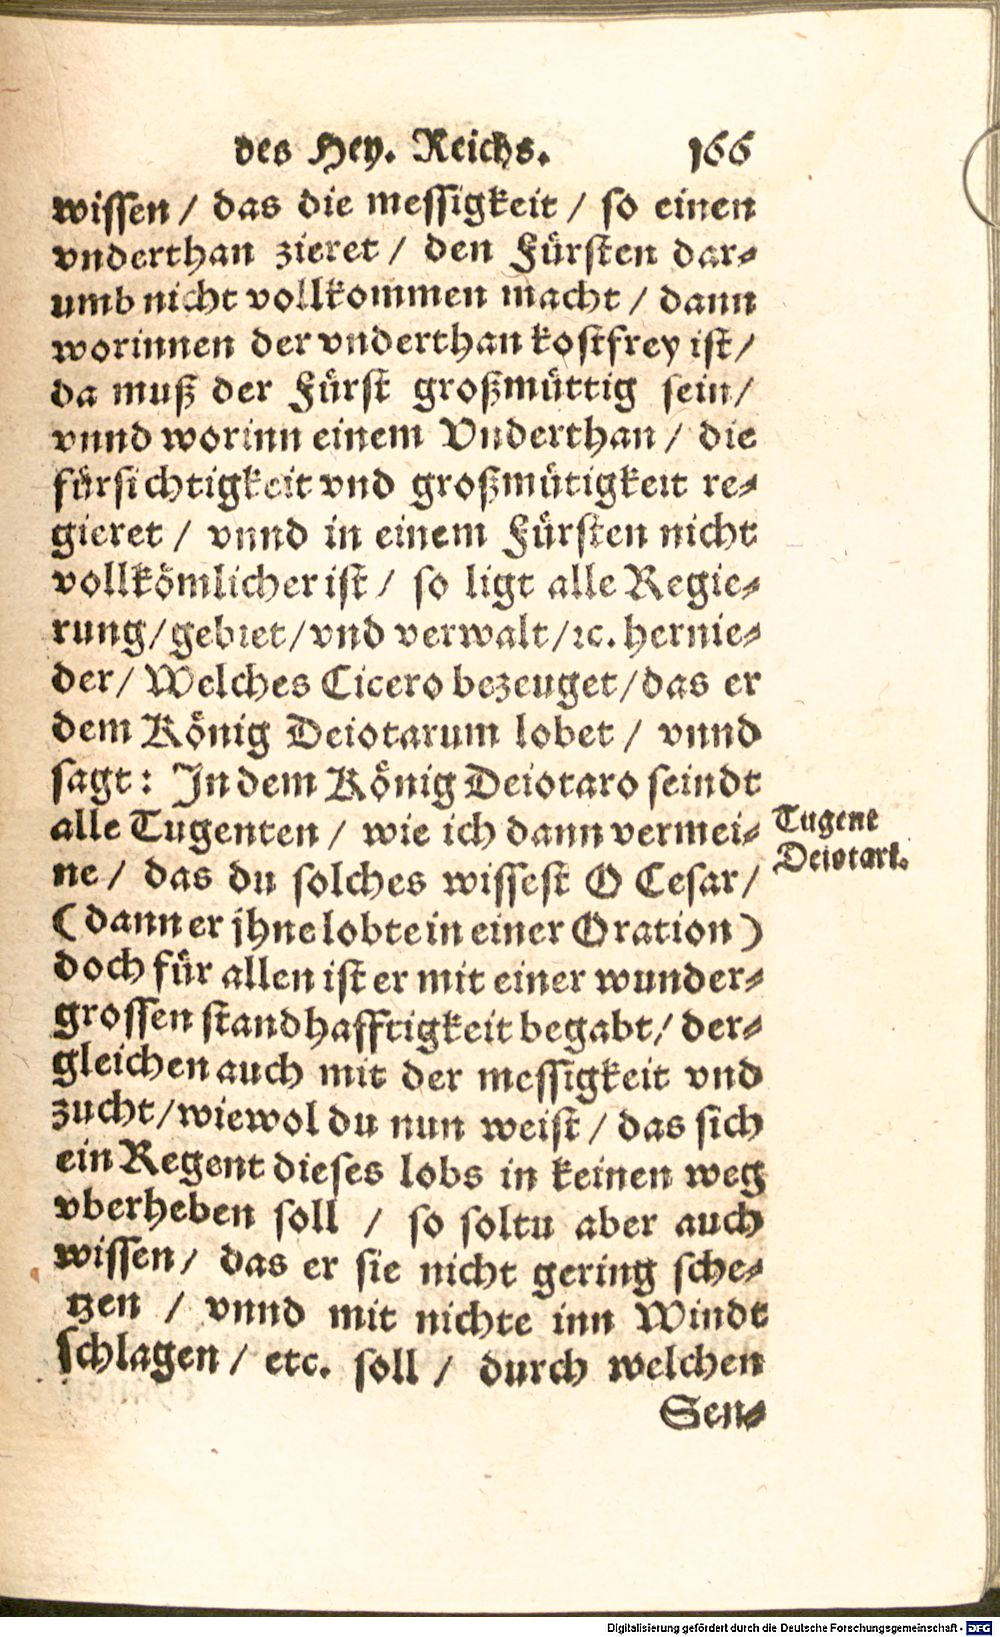 des Hey. Reichs. 166
wissen / das die messigkeit / so einen
vnderthan zieret / den Fürsten dar-
umb nicht vollkommen macht / dann
worinnen der vnderthan kostfrey ist /
da muß der Fürst großmüttig sein /
vnnd worinn einem Vnderthan / die
fürsichtigkeit vnd großmütigkeit re-
gieret / vnnd in einem Fürsten nicht
vollkömlicher ist / so ligt alle Regie-
rung / gebiet / vnd verwalt / ꝛc. hernie-
der / Welches Cicero bezeuget / das er
dem König Deiotarum lobet / vnnd
sagt: In dem König Deiotaro seindt
alle Tugenten / wie ich dann vermei-
ne / das du solches wissest O Cesar /
(dann er jhne lobte in einer Oration)
doch für allen ist er mit einer wunder-
grossen standhafftigkeit begabt / der-
gleichen auch mit der messigkeit vnd
zucht / wiewol du nun weist / das sich
ein Regent dieses lobs in keinen weg
vberheben soll / so soltu aber auch
wissen / das er sie nicht gering sche-
tzen / vnnd mit nichte inn Windt
schlagen / etc. soll / durch welchen
Sen-
Tugent
Deiotari.
Digitalisierung gefördert durch die Deutsche Forschungsgemeinschaft - DFG